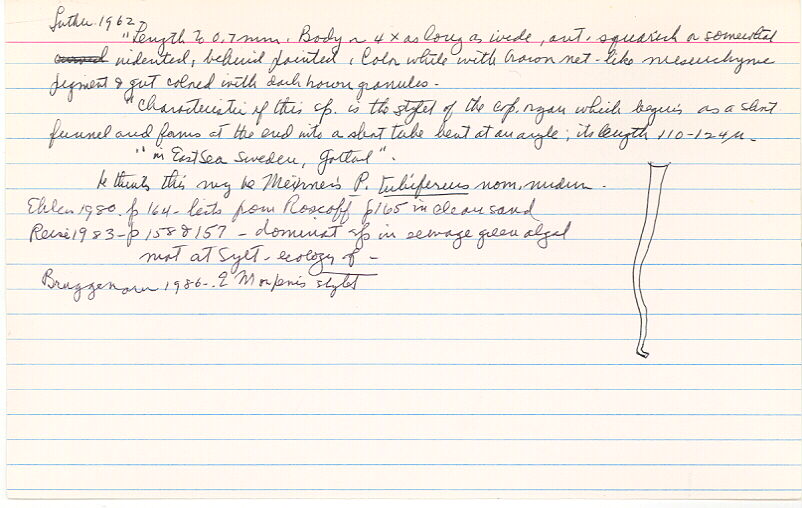 Luther 1962
"Length to 0.7 mm. Body ~ 4 x as long as wide, ant. squarish or somewhat
indented, behind pointed. Color white with brown net-like mesenchyme
pigment & gut colored with dark brown granules.
"Characteristic of this sp. is the stylet of the cop. organ which begins as a short
funnel and forms at the end into a short tube bent at an angle; its length 110-124µ.
"in East Sea Sweden, Gotland".
He thinks this may be Meixner's P. tubiferus nom. nudum.
Ehlers 1980. p 164 - lists from Roscoff p165 in clean sand
Reise 1983 - p 158 & 157 - dominant sp in sewage green algal
mat at Sylt - ecology of -
1986 - 2 penis stylet